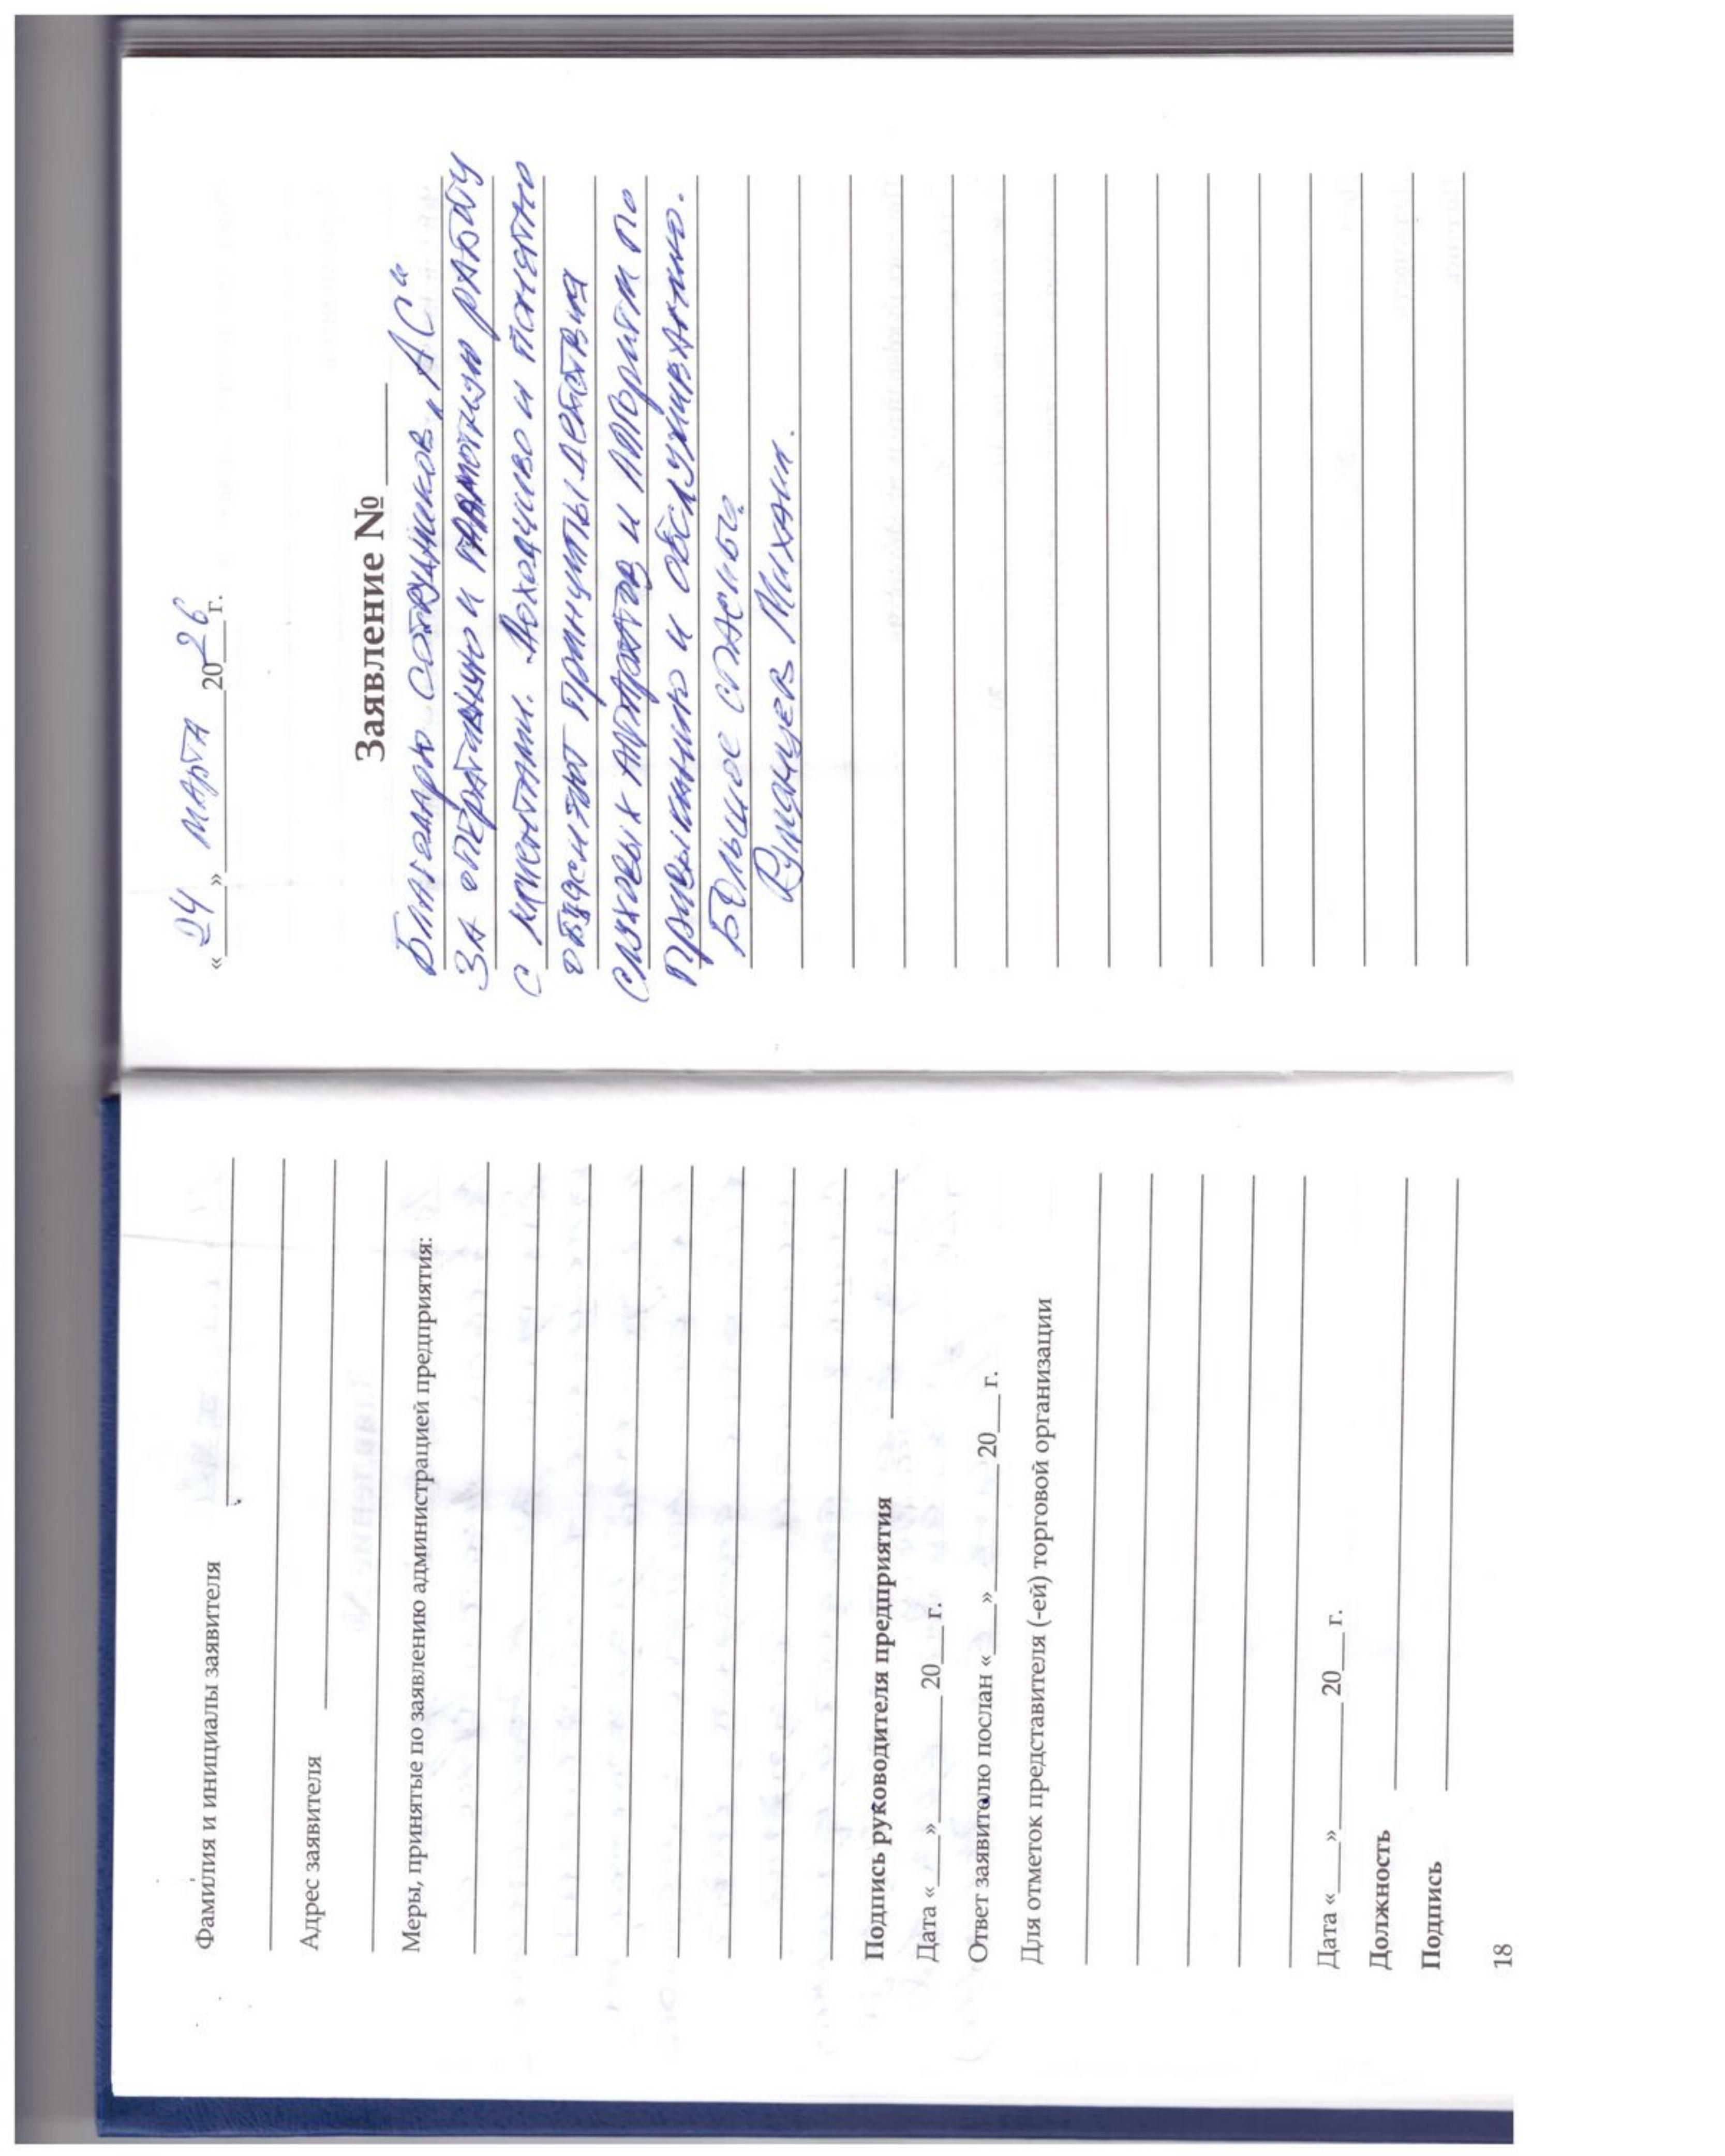 Фамилия и инициалы заявителя ____
Адрес заявителя ____
Меры, принятые по заявлению администрацией предприятия:
Подпись руководителя предприятия ____
Дата «___»____ 20___г.
Ответ заявителю послан «___»____ 20___г.
Для отметок представителя (-ей) торговой организации
Дата «___»____ 20___ г.
Должность ____
Подпись ____
18
«24» марта 2026 г.
Заявление № ____
Благодарю сотрудников „АС“
за оперативную и грамотную работу
с клиентами. Доходчиво и понятно
объясняют принципы действия
слуховых аппаратов и алгоритм по
привыканию и обслуживанию.
Большое спасибо
Румянцев Михаил.